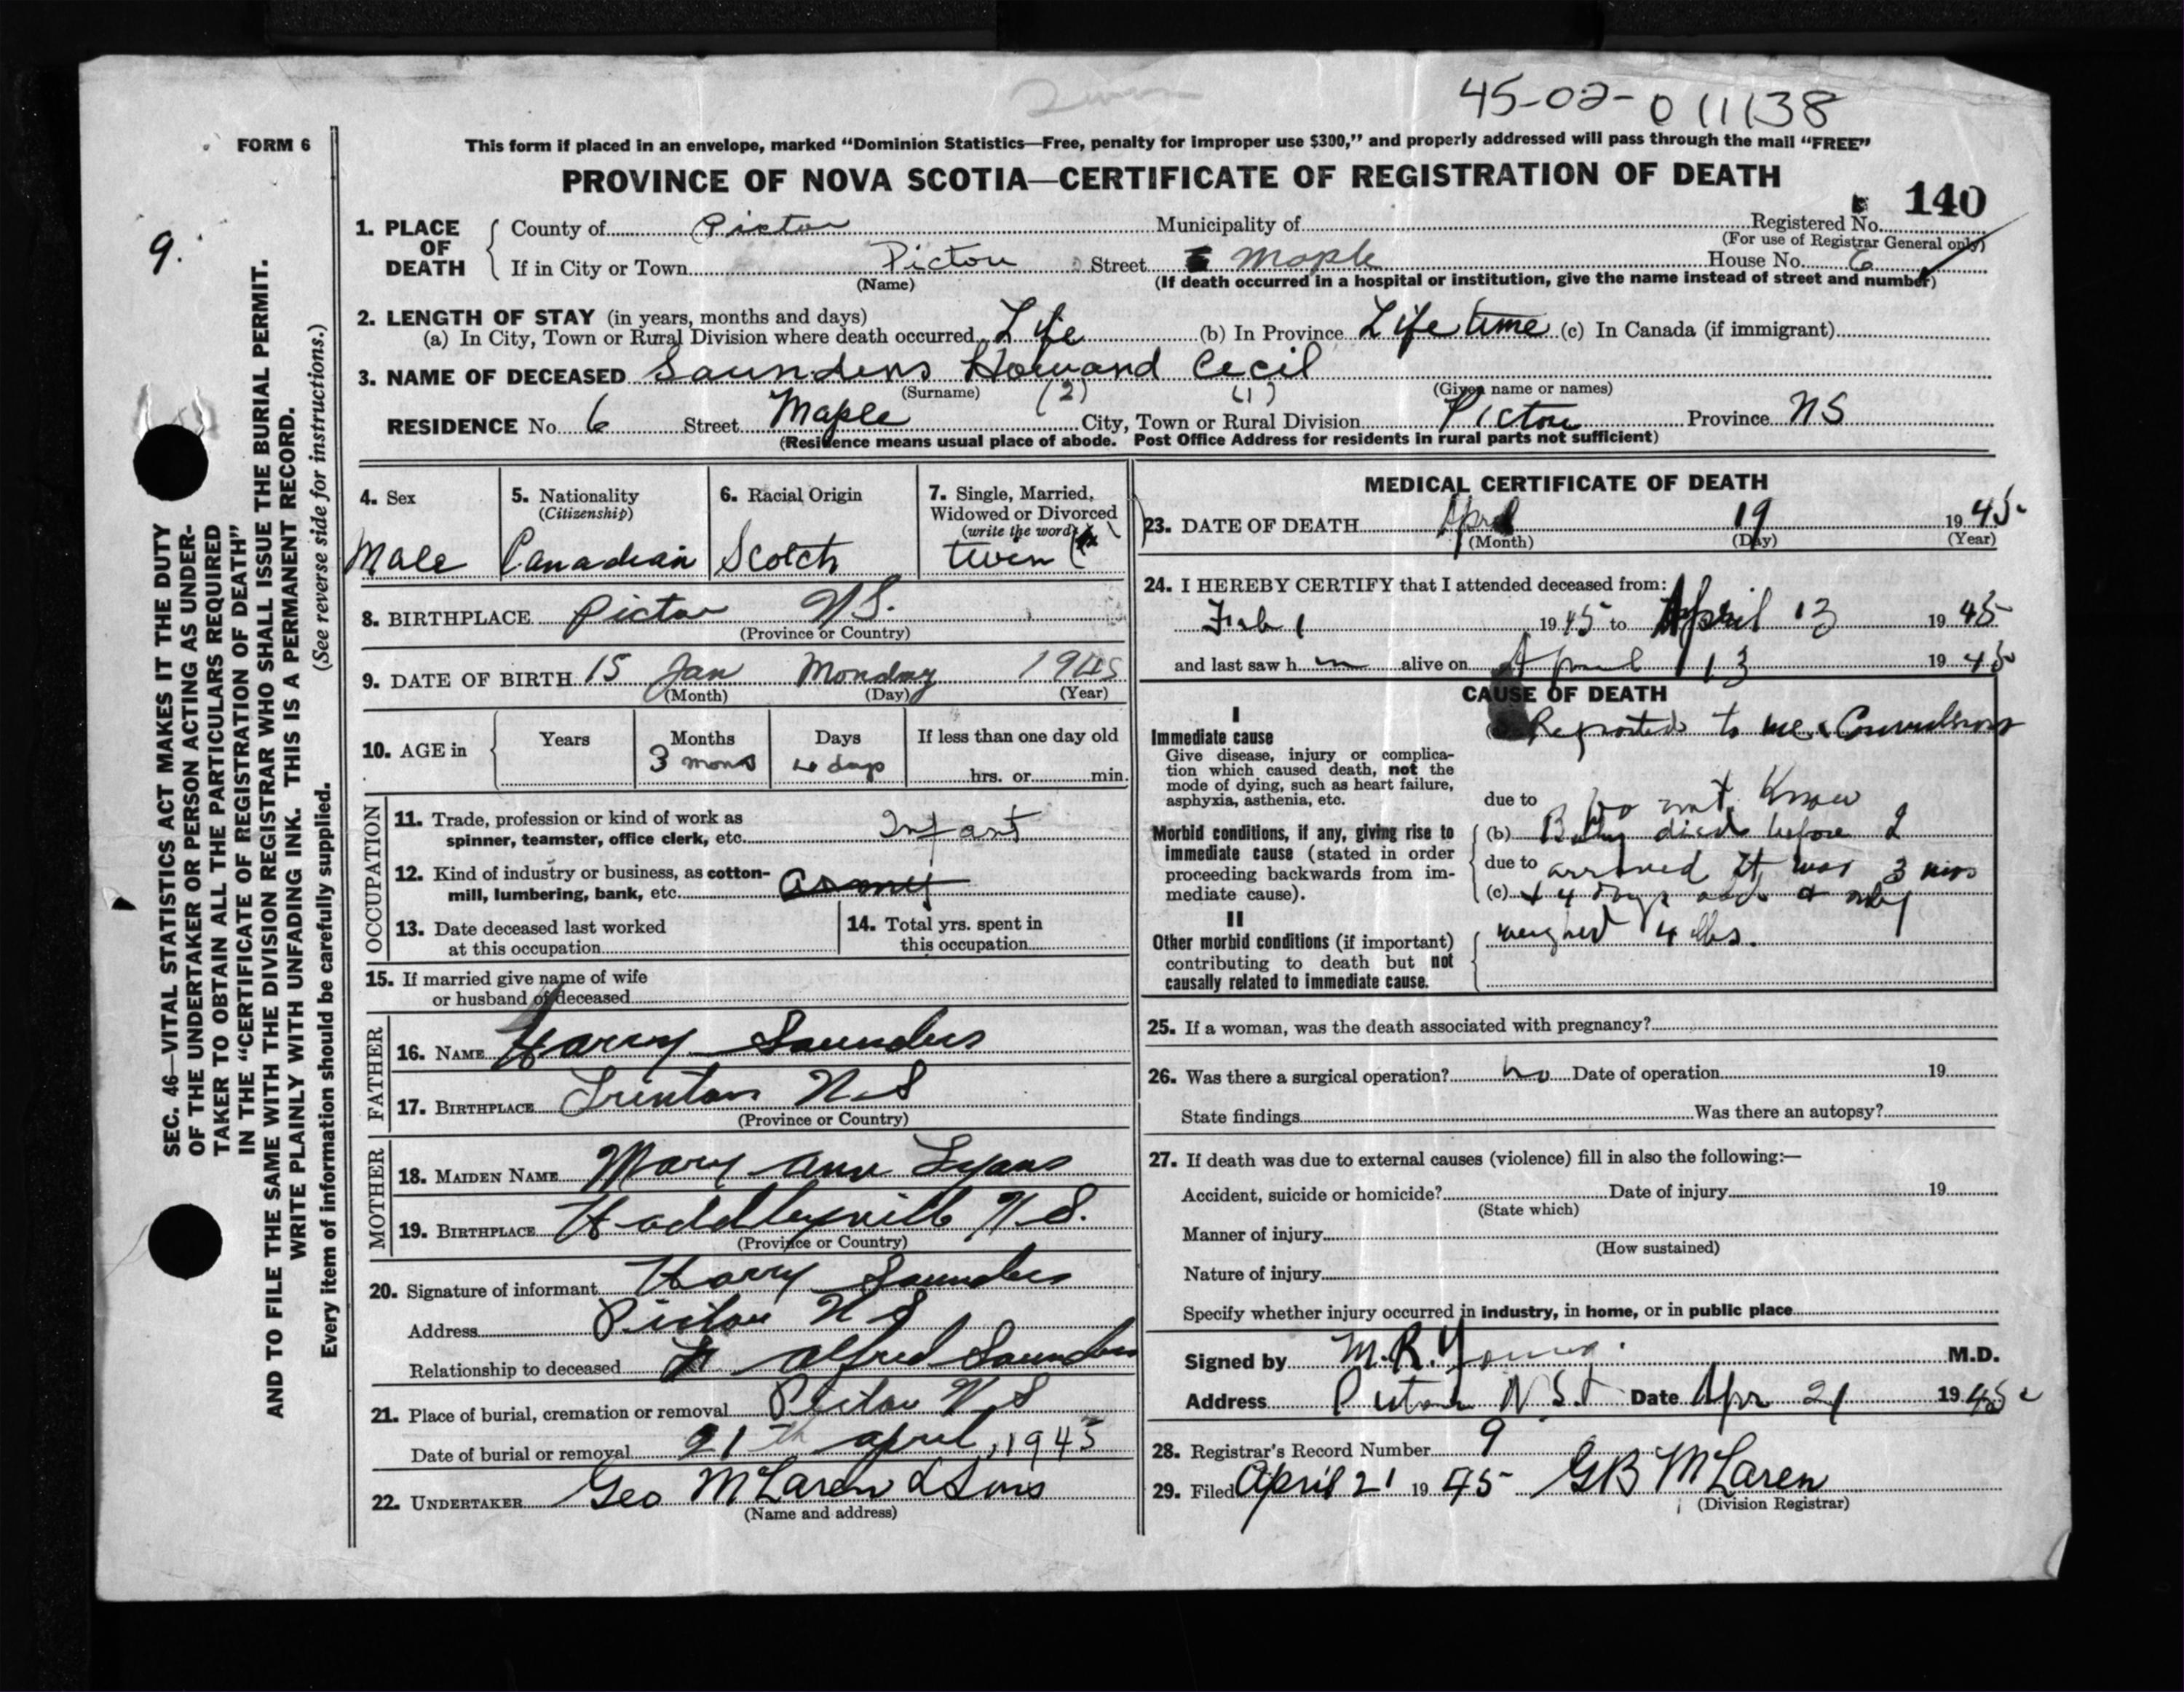 Twin
45-02-011138
FORM 6
This form if placed in an envelope, marked “Dominion Statistics—Free, penalty for improper use $300,” and properly addressed will pass through the mail “FREE”
PROVINCE OF NOVA SCOTIA—CERTIFICATE OF REGISTRATION OF DEATH
140
9.
1. PLACE OF DEATH
County of Pictou Municipality of Registered No.
(For use of Registrar General only)
If in City or Town Pictou Street Maple House No. 6
(Name) (If death occurred in a hospital or institution, give the name instead of street and number)
2. LENGTH OF STAY (in years, months and days)
(a) In City, Town or Rural Division where death occurred Life (b) In Province Life time (c) In Canada (if immigrant)
3. NAME OF DECEASED Saunders Howard Cecil
(Surname) (2) (1) (Given name or names)
RESIDENCE No. 6 Street Maple City, Town or Rural Division Pictou Province NS
(Residence means usual place of abode. Post Office Address for residents in rural parts not sufficient)
4. Sex
Male
5. Nationality
(Citizenship)
Canadian
6. Racial Origin
Scotch
7. Single, Married,
Widowed or Divorced
(write the word)
twin
8. BIRTHPLACE Pictou N.S.
(Province or Country)
9. DATE OF BIRTH 15 Jan Monday 1945
(Month) (Day) (Year)
10. AGE in
Years Months Days If less than one day old
3 mons 4 days hrs. or min.
OCCUPATION
11. Trade, profession or kind of work as
spinner, teamster, office clerk, etc. Infant
12. Kind of industry or business, as cotton-
mill, lumbering, bank, etc. army
13. Date deceased last worked
at this occupation
14. Total yrs. spent in
this occupation
15. If married give name of wife
or husband of deceased
FATHER
16. NAME Harry Saunders
17. BIRTHPLACE Trenton N.S
(Province or Country)
MOTHER
18. MAIDEN NAME Mary Ann Lyans
19. BIRTHPLACE Haddleyville N.S.
(Province or Country)
20. Signature of informant Harry Saunders
Address Pictou N S
Relationship to deceased Alfred Saunders
21. Place of burial, cremation or removal Pictou N S
Date of burial or removal 21th april, 1945
22. UNDERTAKER Geo McLaren & Sons
(Name and address)
MEDICAL CERTIFICATE OF DEATH
23. DATE OF DEATH April 19 1945
(Month) (Day) (Year)
24. I HEREBY CERTIFY that I attended deceased from:
Feb 1 1945 to April 13 1945
and last saw h im alive on April 13 1945
CAUSE OF DEATH
I
Immediate cause
Give disease, injury or complica-
tion which caused death, not the
mode of dying, such as heart failure,
asphyxia, asthenia, etc.
Reported to me Convulsions
due to Do not Know
Morbid conditions, if any, giving rise to
immediate cause (stated in order
proceeding backwards from im-
mediate cause).
(b) Baby died before I
due to arrived It was 3 mos
(c) + 4 days old & only
II
Other morbid conditions (if important)
contributing to death but not
causally related to immediate cause.
weighed 4 lbs.
25. If a woman, was the death associated with pregnancy?
26. Was there a surgical operation? no Date of operation 19
State findings Was there an autopsy?
27. If death was due to external causes (violence) fill in also the following:—
Accident, suicide or homicide? Date of injury 19
(State which)
Manner of injury
(How sustained)
Nature of injury
Specify whether injury occurred in industry, in home, or in public place
Signed by M.R. Young M.D.
Address Pictou N.S. Date Apr 21 1945
28. Registrar's Record Number 9
29. Filed April 21 1945 GB McLaren
(Division Registrar)
SEC. 46—VITAL STATISTICS ACT MAKES IT THE DUTY
OF THE UNDERTAKER OR PERSON ACTING AS UNDER-
TAKER TO OBTAIN ALL THE PARTICULARS REQUIRED
IN THE “CERTIFICATE OF REGISTRATION OF DEATH”
AND TO FILE THE SAME WITH THE DIVISION REGISTRAR WHO SHALL ISSUE THE BURIAL PERMIT.
WRITE PLAINLY WITH UNFADING INK. THIS IS A PERMANENT RECORD.
Every item of information should be carefully supplied. (See reverse side for instructions.)